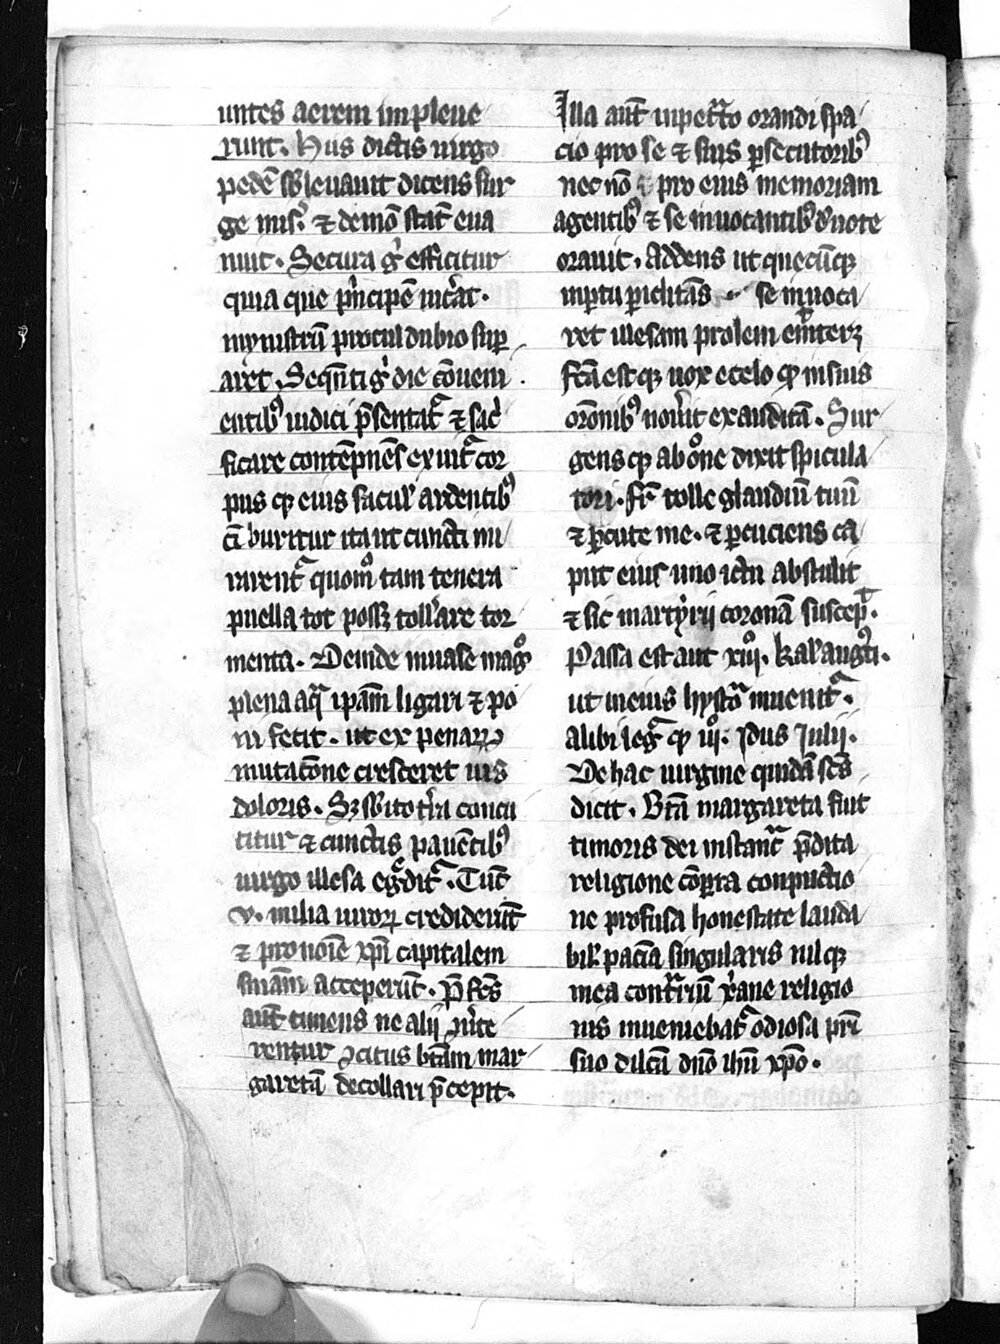 untes aerem impleue
runt. Hiis dictis uirgo
pedē sb̾leuauit dicens sur
ge mis̾. ⁊ demō stat̄ eua
nuit. Secura g̊ efficitur
quia que p̾ncipē uic̾at.
mynistrū procul dubio sup̱
aret. Seq̄nti g̊ die cōueni
entib⁹ iudici p̄sentat᷑ ⁊ sac̾
ficare contēpnēs exuit᷑ cor
pus q̱ eius facul̾ ardentib⁹
cī buritur ita ut cuncti mi
rarent᷑ quom̊ tam tenera
puella tot poss̄ toll̾are tor
menta. Deinde in uase mag̊
plena aq̄ ipam̄ ligari ⁊ po
ni fecit. ut ex penaꝝ
mutatōne cresceret uis
doloris. Sꝫ sb̾ito t̾ra concu
titur ⁊ cunctis pauētib⁹
uirgo illesa eg̾dit᷑. Tūc
v. milia uiroꝝ crediderūt
⁊ pro noīe xp̄i capitalem
sn̄iam acceperūt. P̄fcs̄
aut̄ timens ne alij ꝯu̾te
rentur ꝯcitus bt̄am mar
garetā decollari p̄cepit.
Illa aut̄ inpet᷑to orandi spa
cio pro se ⁊ suis ꝑsecutorib⁹
nec nō pro eius memoriam
agentib⁹ ⁊ se inuocantib⁹ d̾uote
orauit. Addens ut quecūqꝫ
in ꝑtu ꝑiclitās se inuoca
ret illesam prolem emi̾teret
fc̄a est qꝫ uox e celo qꝫ in suis
orōnib⁹ nou̾it exauditā. Sur
gens qꝫ ab orōne dixit spicula
tori. fr̄ tolle glaudiū tuū
⁊ ꝑcute me. ⁊ ꝑcuciens ca
put eius uno ictu abstulit
⁊ sic martyrij coronā suscep̄.
Passa est aut xiiij. kal̾ augti.
ut in eius hystō inuenit᷑.
alibi leg᷑ qꝫ iij. Idus Julij.
De hac uirgine quidā scs̄
dicit. Bt̄a margareta fuit
timoris dei instant᷑ p̄dita
religione cōꝑta conpuctio
ne profusa honestate lauda
bil̾ pacīa singularis nil qꝫ
in ea cont᷑riū xp̄iane religio
nis inueniebat᷑ odiosa pr̄i
suo dilc̄a dn̄o ihū xp̄o.